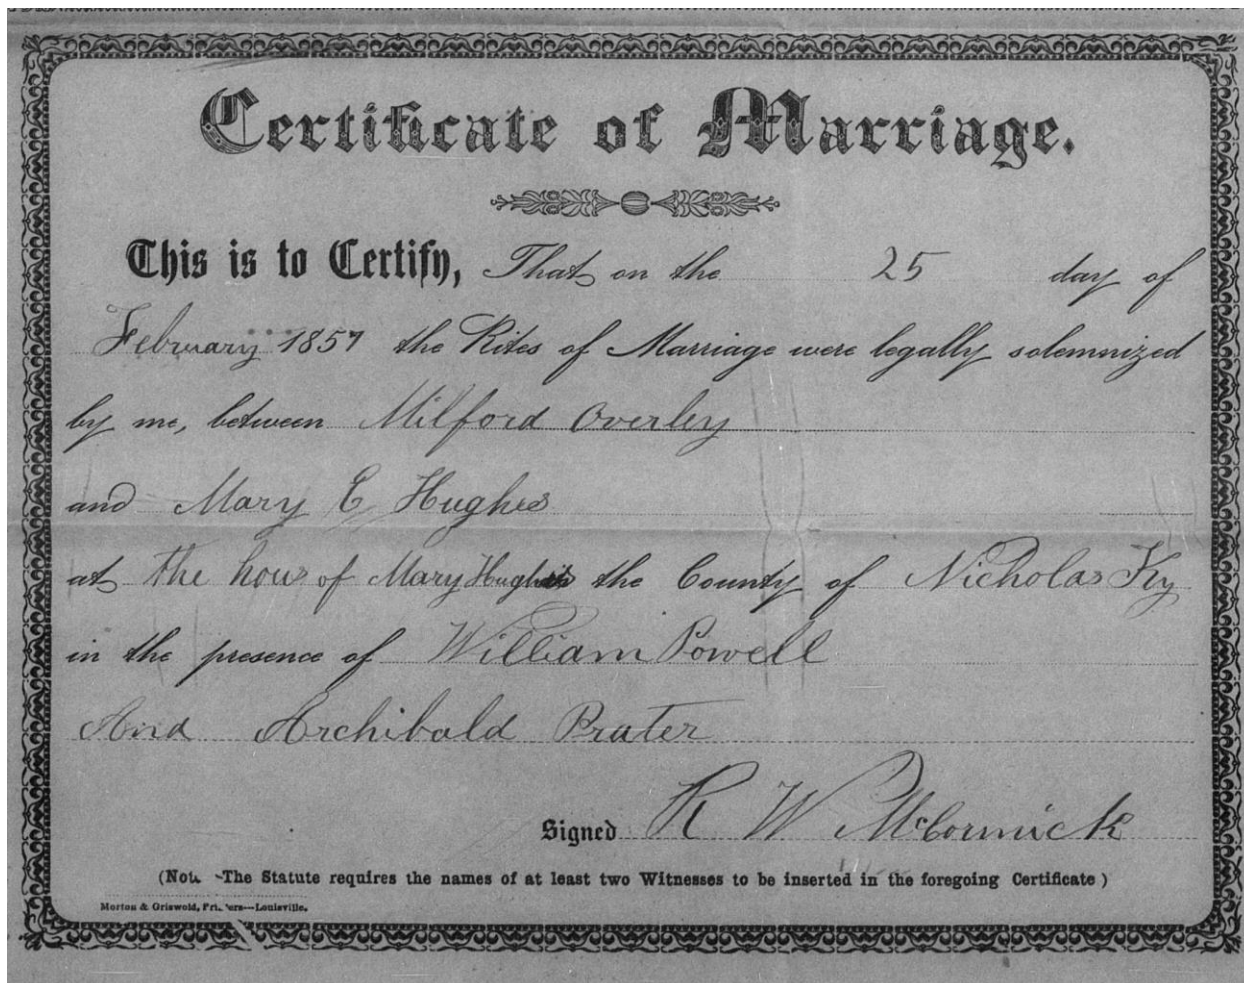 Certificate of Marriage.
This is to Certify, That on the 25 day of
February 1857 the Rites of Marriage were legally solemnized
by me, between Milford Overley
and Mary E Hughes
at the hous of Mary Hughes in the County of Nicholas Ky
in the presence of William Powell
And Archibald Prater
Signed R W McCormick
(Note -The Statute requires the names of at least two Witnesses to be inserted in the foregoing Certificate)
Morton & Griswold, Printers---Louisville.